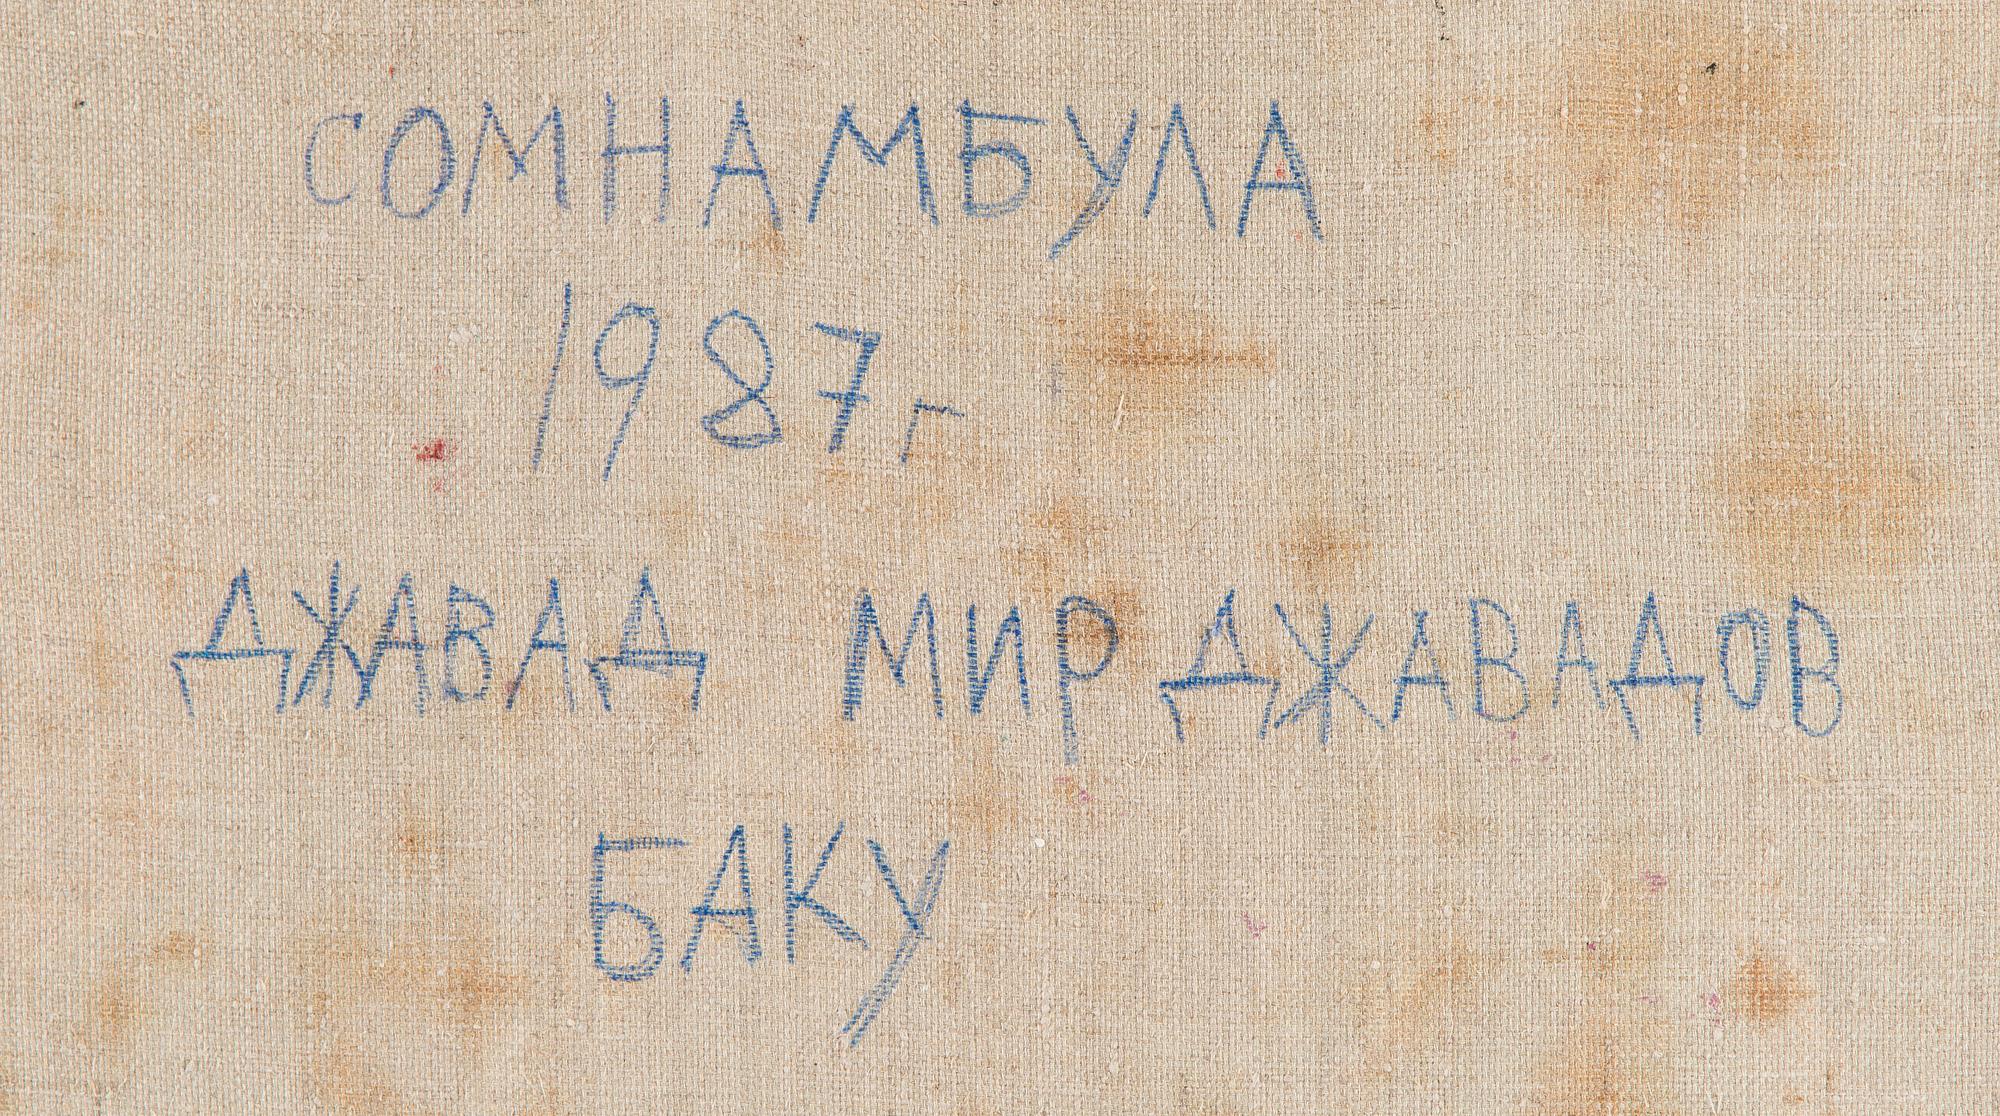 СОМНАМБУЛА
1987г
ДЖАВАД МИРДЖАВАДОВ
БАКУ